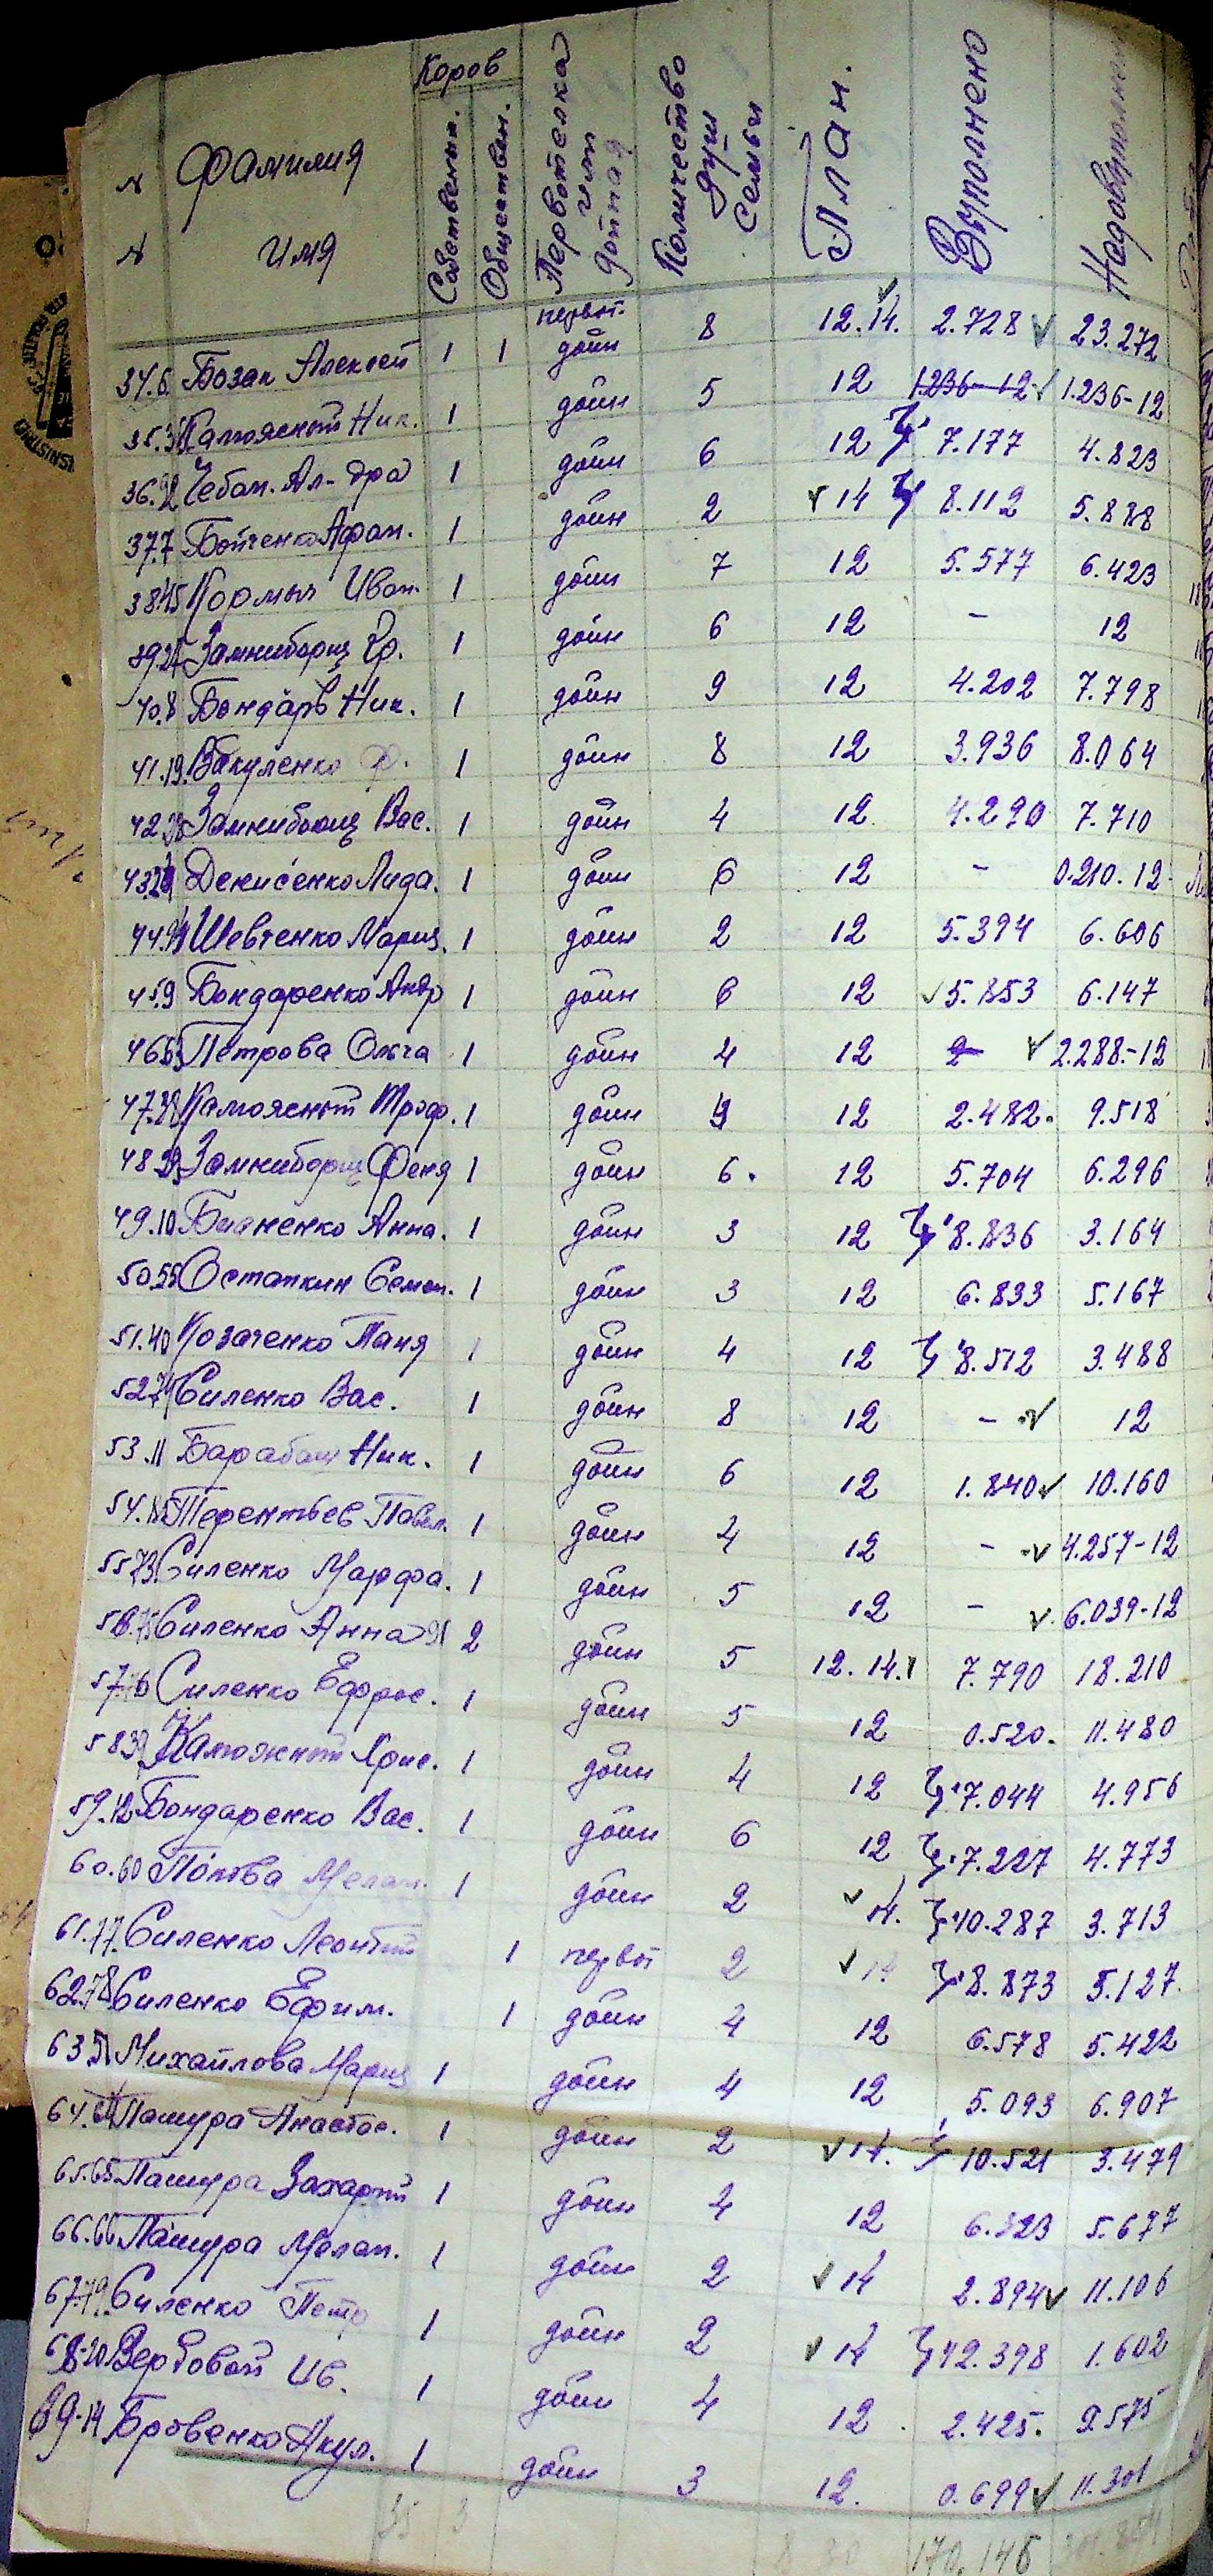 Коров
№ Фамилия
№ имя
Собственн. Обществен. Первотелка или дойная Количество душ семьи План. Выполнено Недовыполнен
34.6. Бозан Алексей 1 1 первот. дойн 8 12.14. 2.728 23.272
35. Ник. 1 дойн 5 12 1.236-12 1.236-12
36. Чебан. Ал-дра 1 дойн 6 12 7.177 4.823
37.7 Бойченко Афан. 1 дойн 2 14 8.112 5.888
38.45 Иван. 1 дойн 7 12 5.577 6.423
39. Замниборщ Гр. 1 дойн 6 12 - 12
40.8 Бондарь Ник. 1 дойн 9 12 4.202 7.798
41.19. Вакуленко Ф. 1 дойн 8 12 3.936 8.064
42. Замниборщ Вас. 1 дойн 4 12 4.290 7.710
43. Денисенко Лида. 1 дойн 6 12 - 0.210.12
44. Шевченко Мария. 1 дойн 2 12 5.394 6.606
45.9 Бондаренко Андр 1 дойн 6 12 5.853 6.147
46. Петрова Ольга 1 дойн 4 12 2.288.-12
47. Троф. 1 дойн 12 2.482. 9.518
48. Замниборщ Феня 1 дойн 6. 12 5.704 6.296
49.10 Анна. 1 дойн 3 12 8.836 3.164
50.55 Остапкин Семен. 1 дойн 3 12 6.833 5.167
51.40 Козаченко Таня 1 дойн 4 12 8.512 3.488
52.74 Силенко Вас. 1 дойн 8 12 - 12
53.11 Барабаш Ник. 1 дойн 6 12 1.840 10.160
54. Терентьев Павел. 1 дойн 4 12 - 4.257-12
55.73. Силенко Марфа. 1 дойн 5 12 - 6.039-12
56.75 Силенко Анна 2 дойн 5 12.14. 7.790 18.210
57.76 Силенко Ефрос. 1 дойн 5 12 0.520. 11.480
58.39 Хрис. 1 дойн 4 12 7.044 4.956
59.12 Бондаренко Вас. 1 дойн 6 12 7.227 4.773
60.60 Мелан. 1 дойн 2 14. 10.287 3.713
61.77. Силенко Леонтий 1 первот 2 14 8.873 5.127.
62.78 Силенко Ефим. 1 дойн 4 12 6.578 5.422
63.51 Михайлова Мария 1 дойн 4 12 5.093 6.907
64.64 Пашура Анастас. 1 дойн 2 14. 10.521 3.479
65.65 Пашура Захарий 1 дойн 4 12 6.323 5.677
66.66 Пашура Мелан. 1 дойн 2 14 2.894 11.106
67.79. Силенко Петр 1 дойн 2 14 12.398 1.602
68-20 Вербовой Ив. 1 дойн 4 12 2.425. 9.575
69-14 Бровенко Акул. 1 дойн 3 12. 0.699 11.301
35 3 170.146